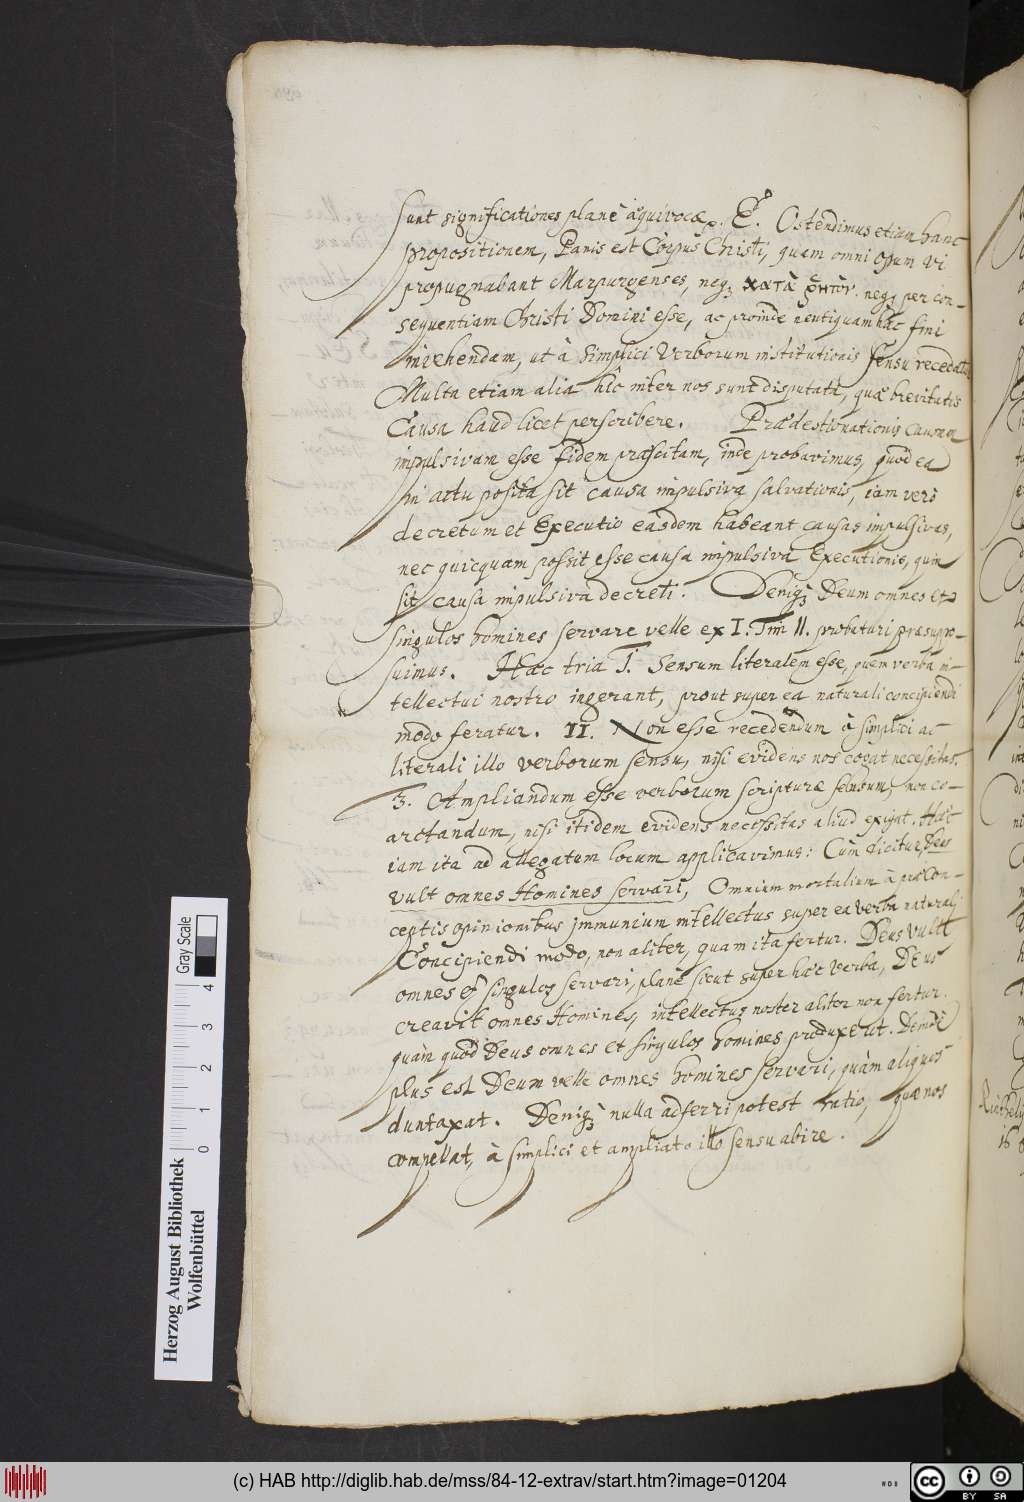 sunt significationes planè aequivocae. E. Ostendimus etiam hanc
propositionem, Panis est Corpus Christi, quam omni opum vi
propugnabant Marpurgenses, neq; κατὰ ῥητὸν neq; per con-
sequentiam Christi Domini esse, ac proinde neutiquam hâc fini
invehendam, ut à simplici verborum institutionis sensu recedatur
Multa etiam alia hîc inter nos sunt disputata, quae brevitatis
Causa haud licet perscribere. Praedestinationis causam
impulsivam esse fidem praescitam, inde probavimus, quod ea
in actu posita sit causa impulsiva salvationis, iam verò
decretum et Executio easdem habeant causas impulsivas,
nec quicquam possit esse causa impulsiva Executionis, quin
sit causa impulsiva decreti. Deniq; Deum omnes et
singulos homines servare velle ex I. Tim II. probaturi praesuppo-
suimus. Haec tria I. Sensum literalem esse, quem verba in-
tellectui nostro ingerant, prout super ea naturali concipiendi
modo feratur. II. Non esse recedendum à simplici ac
literali illo verborum sensu, nisi evidens nos cogat necessitas.
3. Ampliandum esse verborum scripturae sensum, non co-
arctandum, nisi itidem evidens necessitas aliud exigat. Haec
iam ita ad allegatum locum applicavimus: Cùm dicitur, Deus
vult omnes Homines servari, Omnium mortalium à praecon-
ceptis opinionibus immunium intellectus super ea verba naturali
Concipiendi modo, non aliter, quam ita fertur. Deus vult
omnes et singulos servari, planè sicut super haec verba, Deus
creavit omnes Homines, intellectus noster aliter non fertur.
quàm quòd Deus omnes et singulos homines produxerit. Deinde
plus est Deum velle omnes homines servari, quàm aliquos
duntaxat. Deniq; nulla adferri potest ratio, quae nos
compellat, à simplici et ampliato illo sensu abire.
Herzog August Bibliothek
Wolfenbüttel
0 1 2 3 4
Gray Scale
(c) HAB http://diglib.hab.de/mss/84-12-extrav/start.htm?image=01204
WDB
cc BY SA